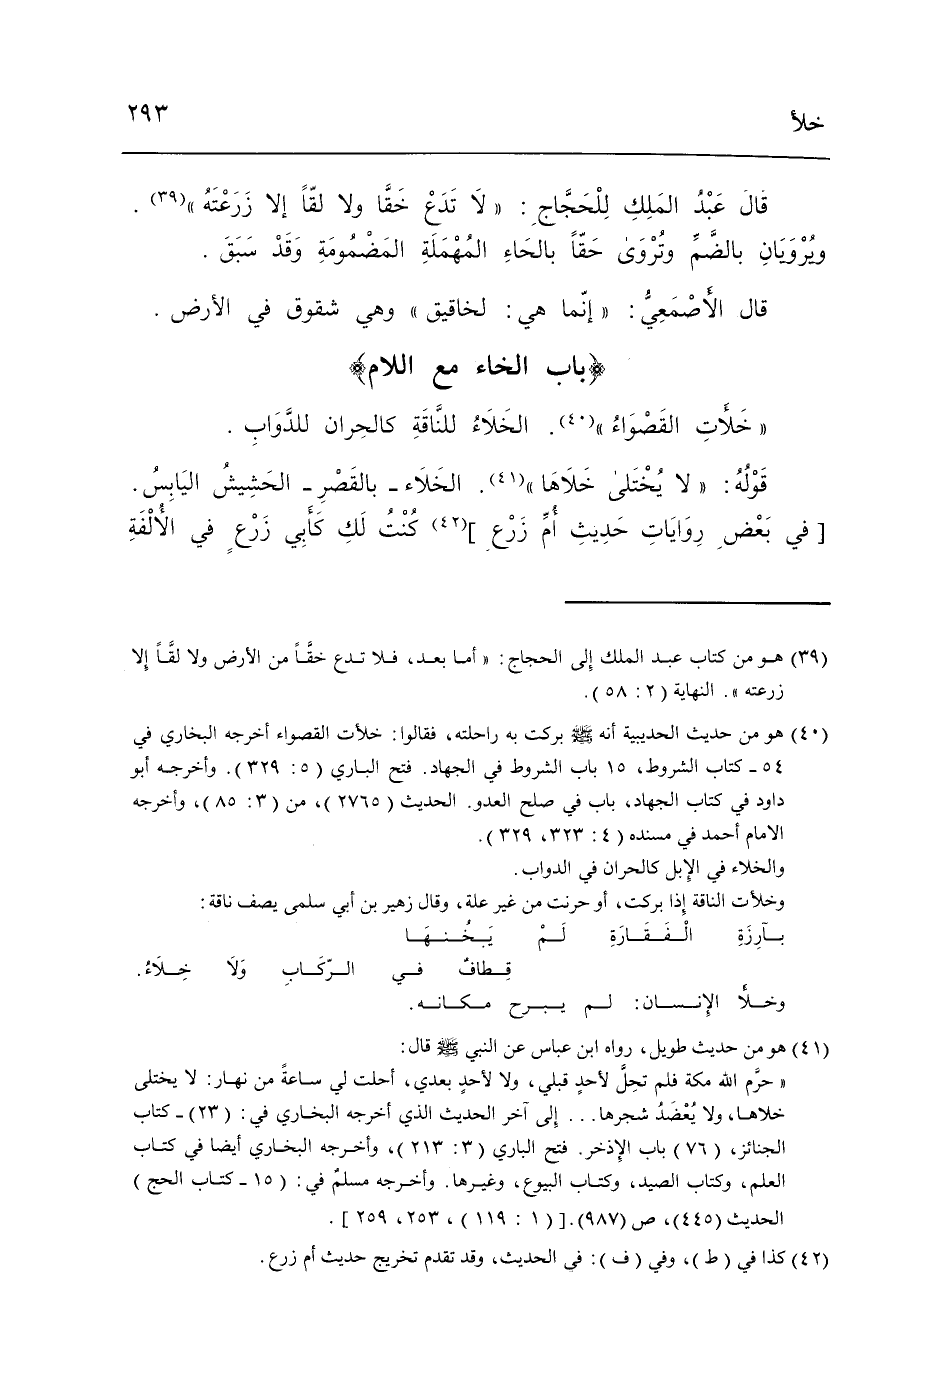 خلأ ٢٩٣
قَالَ عَبْدُ المَلِكِ لِلْحَجَّاجِ : « لَا تَدَعْ خَقَّا ولا لقّاً إلا زَرَعْتَهُ »(٣٩) .
ويُرْوَيَانِ بالضَّمِّ وتُرْوَىٰ حَقّاً بالحَاءِ المُهْمَلَةِ المَضْمُومَةِ وَقَدْ سَبَقَ .
قال الأَصْمَعِيُّ : « إنّما هي : لخاقيق » وهي شقوق في الأرض .
﴿باب الخاء مع اللام﴾
« خَلَأَتِ القَصْوَاءُ »(٤٠). الخَلَاءُ للنَّاقَةِ كالحِران للدَّوَابِ .
قَوْلُهُ : « لا يُخْتَلىٰ خَلَاهَا »(٤١). الخَلَاء ـ بالقَصْرِ ـ الحَشِيشُ اليَابِسُ .
[ في بَعْضِ رِوَايَاتِ حَدِيثِ أُمِّ زَرْعِ ](٤٢) كُنْتُ لَكِ كَأَبِي زَرْعٍ في الأُلْفَةِ
(٣٩) هـو من كتاب عبـد الملك إلى الحجاج : « أمـا بعـد، فـلا تـدع خقَّـاً من الأرض ولا لقَّـاً إلا
زرعته ». النهاية ( ٢ : ٥٨ ).
(٤٠) هو من حديث الحديبية أنه ﷺ بركت به راحلته، فقالوا : خلأت القصواء أخرجه البخاري في
٥٤ ـ كتاب الشروط، ١٥ باب الشروط في الجهاد. فتح البـاري ( ٥ : ٣٢٩ ). وأخرجـه أبو
داود في كتاب الجهاد، باب في صلح العدو. الحديث ( ٢٧٦٥ )، من ( ٣ : ٨٥ )، وأخرجه
الامام أحمد في مسنده ( ٤ : ٣٢٣، ٣٢٩ ).
والخلاء في الإبل كالحران في الدواب.
وخلأت الناقة إذا بركت، أو حرنت من غير علة، وقال زهير بن أبي سلمى يصف ناقة :
بـآرِزَةِ الْـفَـقَـارَةِ لَـمْ يَـخُـنـهَـا
قِـطـافٌ فـي الـرِّكَـابِ وَلَا خِـلَاءُ.
وخـلأَ الإنـسـان : لـم يـبـرح مـكـانـه.
(٤١) هو من حديث طويل، رواه ابن عباس عن النبي ﷺ قال :
« حرَّم الله مكة فلم تحِلَّ لأحدٍ قبلي، ولا لأحدٍ بعدي، أحلت لي سـاعةً من نهـار : لا يختلى
خلاهـا، ولا يُعْضَدُ شجرها... إلى آخر الحديث الذي أخرجه البخاري في : ( ٢٣) ـ كتاب
الجنائز، ( ٧٦ ) باب الإذخر. فتح الباري ( ٣ : ٢١٣ )، وأخـرجه البخـاري أيضا في كتـاب
العلم، وكتاب الصيد، وكتـاب البيوع، وغيـرها. وأخـرجه مسلمٌ في : ( ١٥ ـ كتـاب الحج )
الحديث (٤٤٥)، ص (٩٨٧).[ ( ١ : ١١٩ ) ، ٢٥٣، ٢٥٩ ] .
(٤٢) كذا في ( ط )، وفي ( ف ) : فى الحديث، وقد تقدم تخريج حديث أم زرع .